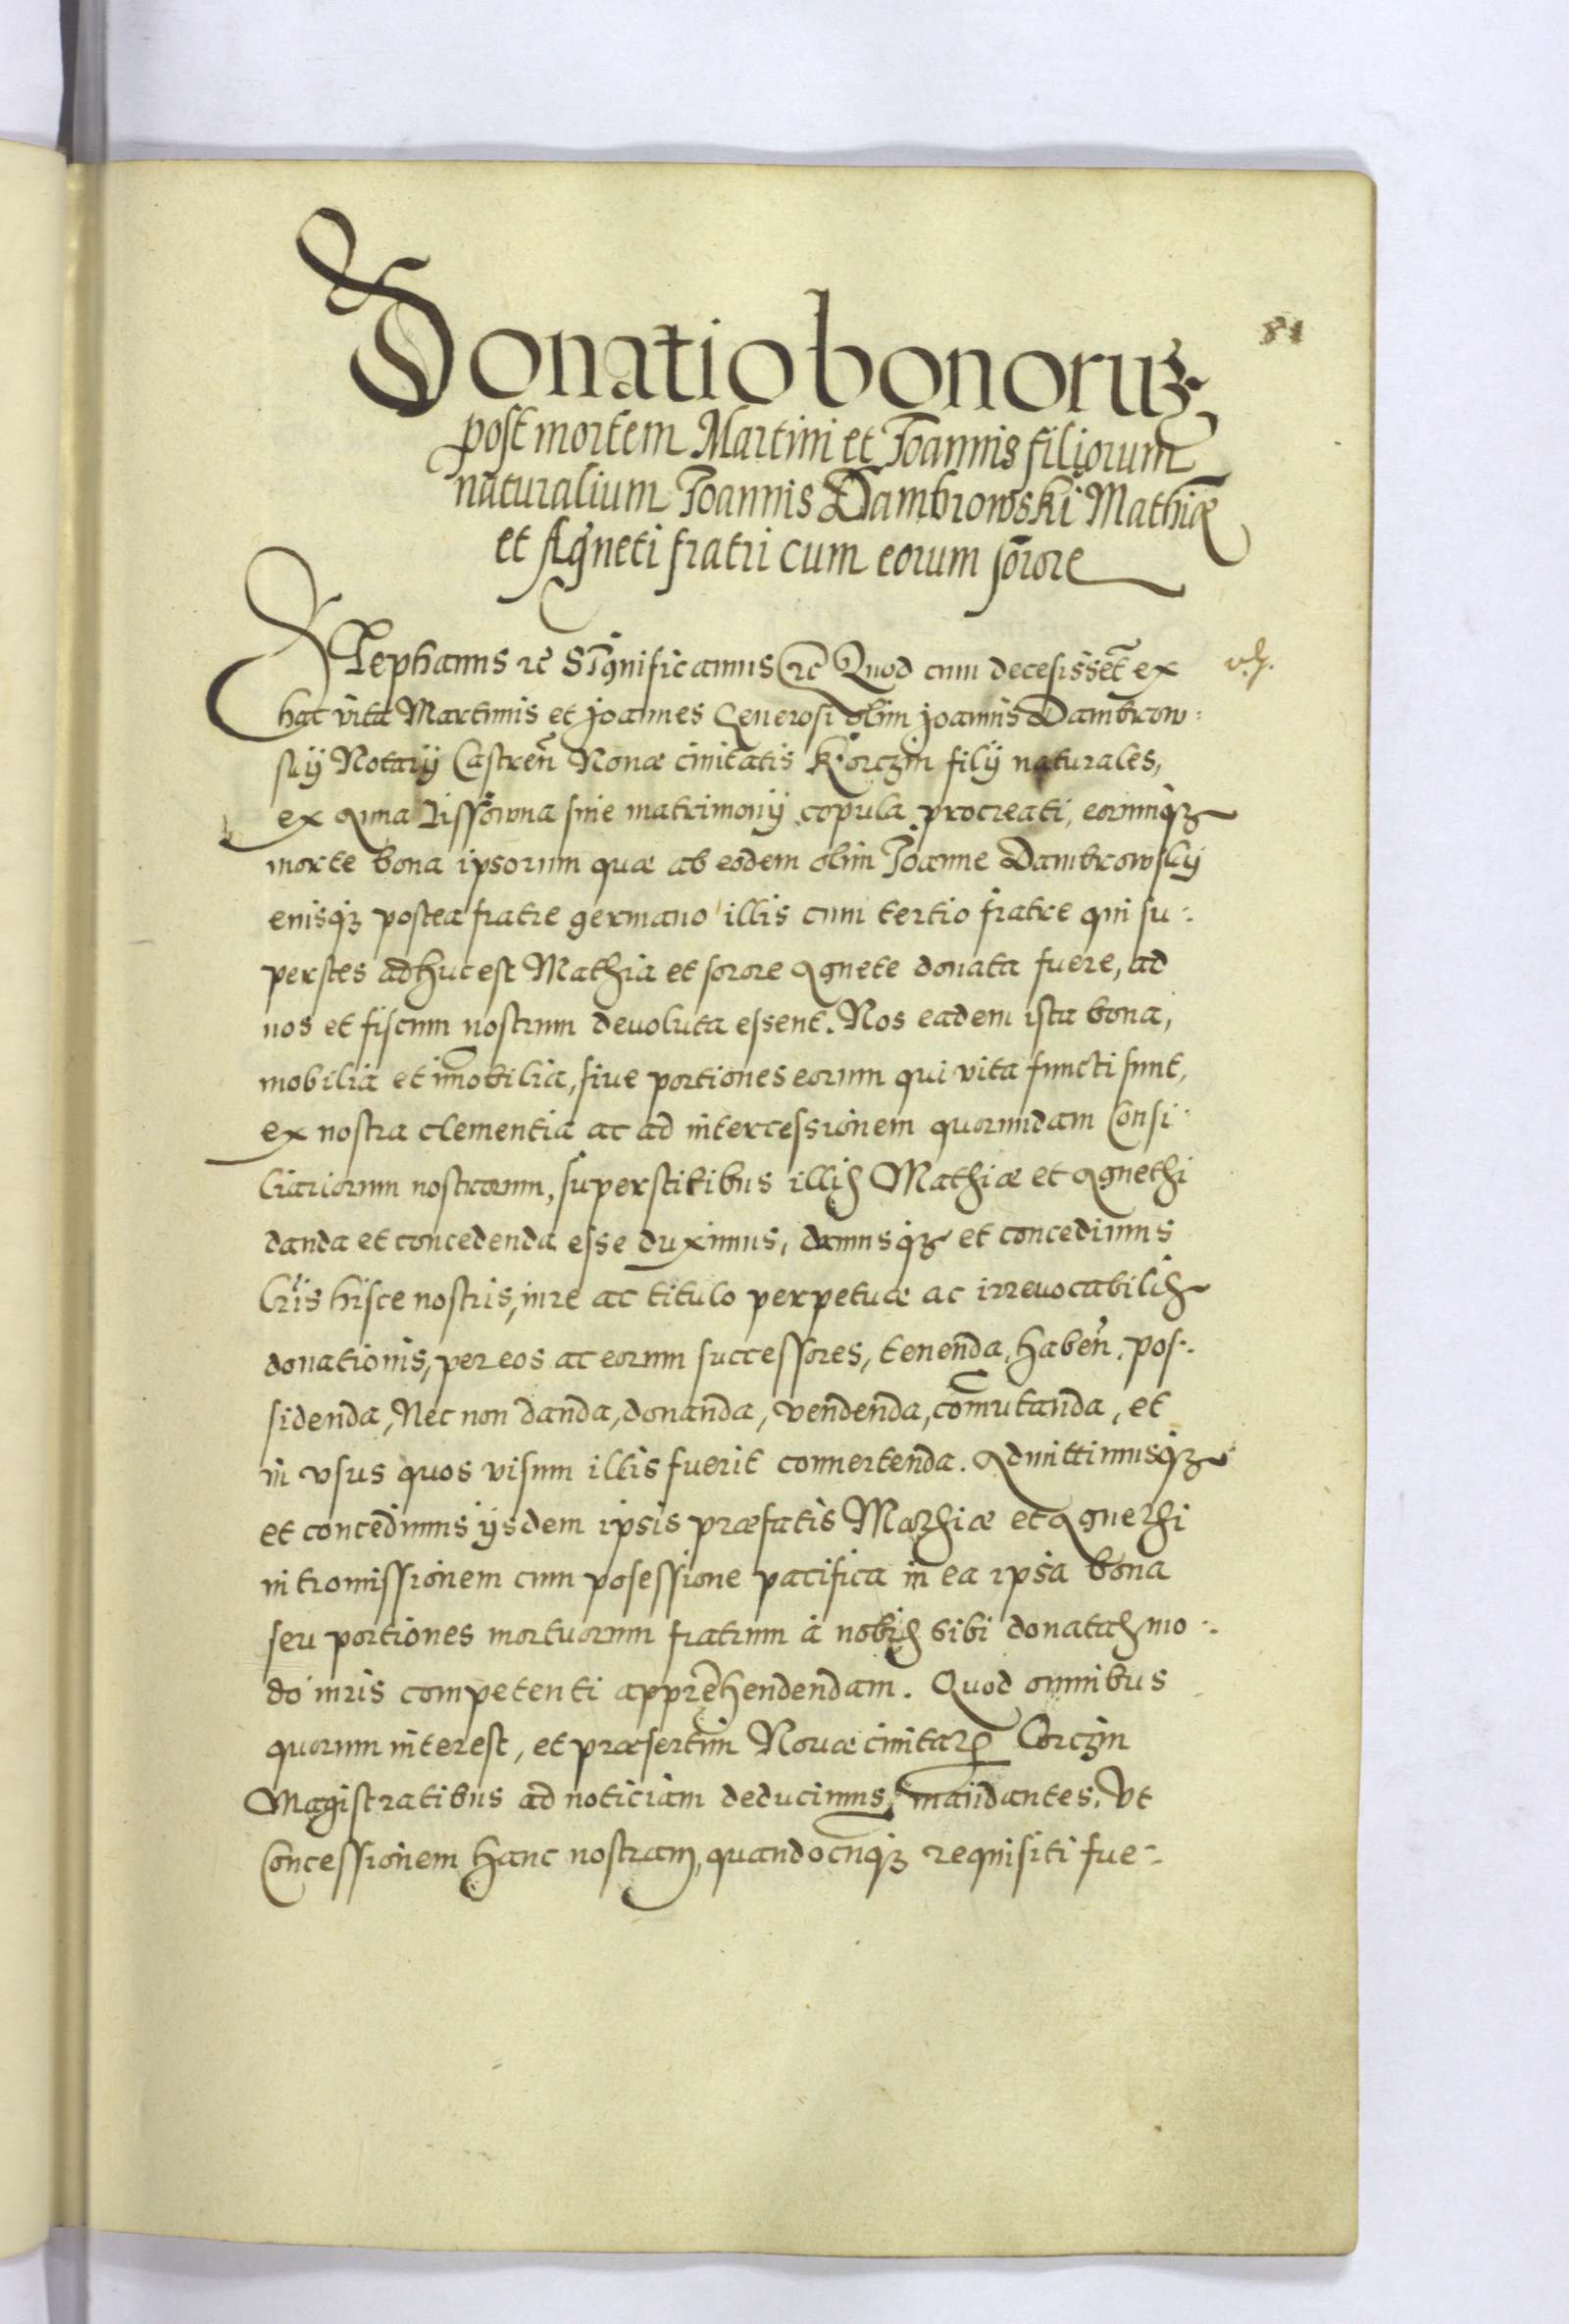 81
Donatio bonoruʒ
post mortem Martini et Joannis filiorum
naturalium Joannis Dambrowski Mathiæ
et Agneti fratri cum eorum sorore
Stephanus ꝛc̃ Significamus ꝛc̃ Quod cum decesisset̃ ex
hac vita Martinus et Joannes Generosi olim Joannis Dambrow:
skij Notarij Castreñ Nouæ ciuitatis Korczin filij naturales,
ex Anna Lissowna sine matrimonij copula procreati, eorumqʒ
morte bona ipsorum quæ ab eodem olim Joanne Dambrowskij
eiusqʒ postea fratre germano illis cum tertio fratre qui su:
perstes adhuc est Mathia et sorore Agnete donata fuere, ad
nos et fiscum nostrum deuoluta essent. Nos eadem ista bona,
mobilia et im̃obilia, siue portiones eorum qui vita functi sunt,
ex nostra clementia ac ad intercessionem quorundam Consi:
liariorum nostrorum, superstitibus illis Mathiæ et Agnethi
danda et concedenda esse duximus, damusqʒ et concedimus
lr̃is hisce nostris, iure ac titulo perpetuæ ac irreuocabilis
donationis, per eos ac eorum successores, tenenda, habeñ. pos:
sidenda, Nec non danda, donanda, vendenda, com̃utanda, et
in vsus quos visum illis fuerit conuertenda. Admittimusqʒ
et concedimus ijsdem ipsis præfatis Mathiæ et Agnethi
intromissionem cum posessione pacifica in ea ipsa bona
seu portiones mortuorum fratrum à nobis sibi donatas mo:
do iuris competenti apprehendendam. Quod omnibus
quorum interest, et præsertim Nouæ ciuitatis Corczin
Magistratibus ad noticiam deducimus, mandantes, Vt
Concessionem hanc nostram, quandocunqʒ requisiti fue: